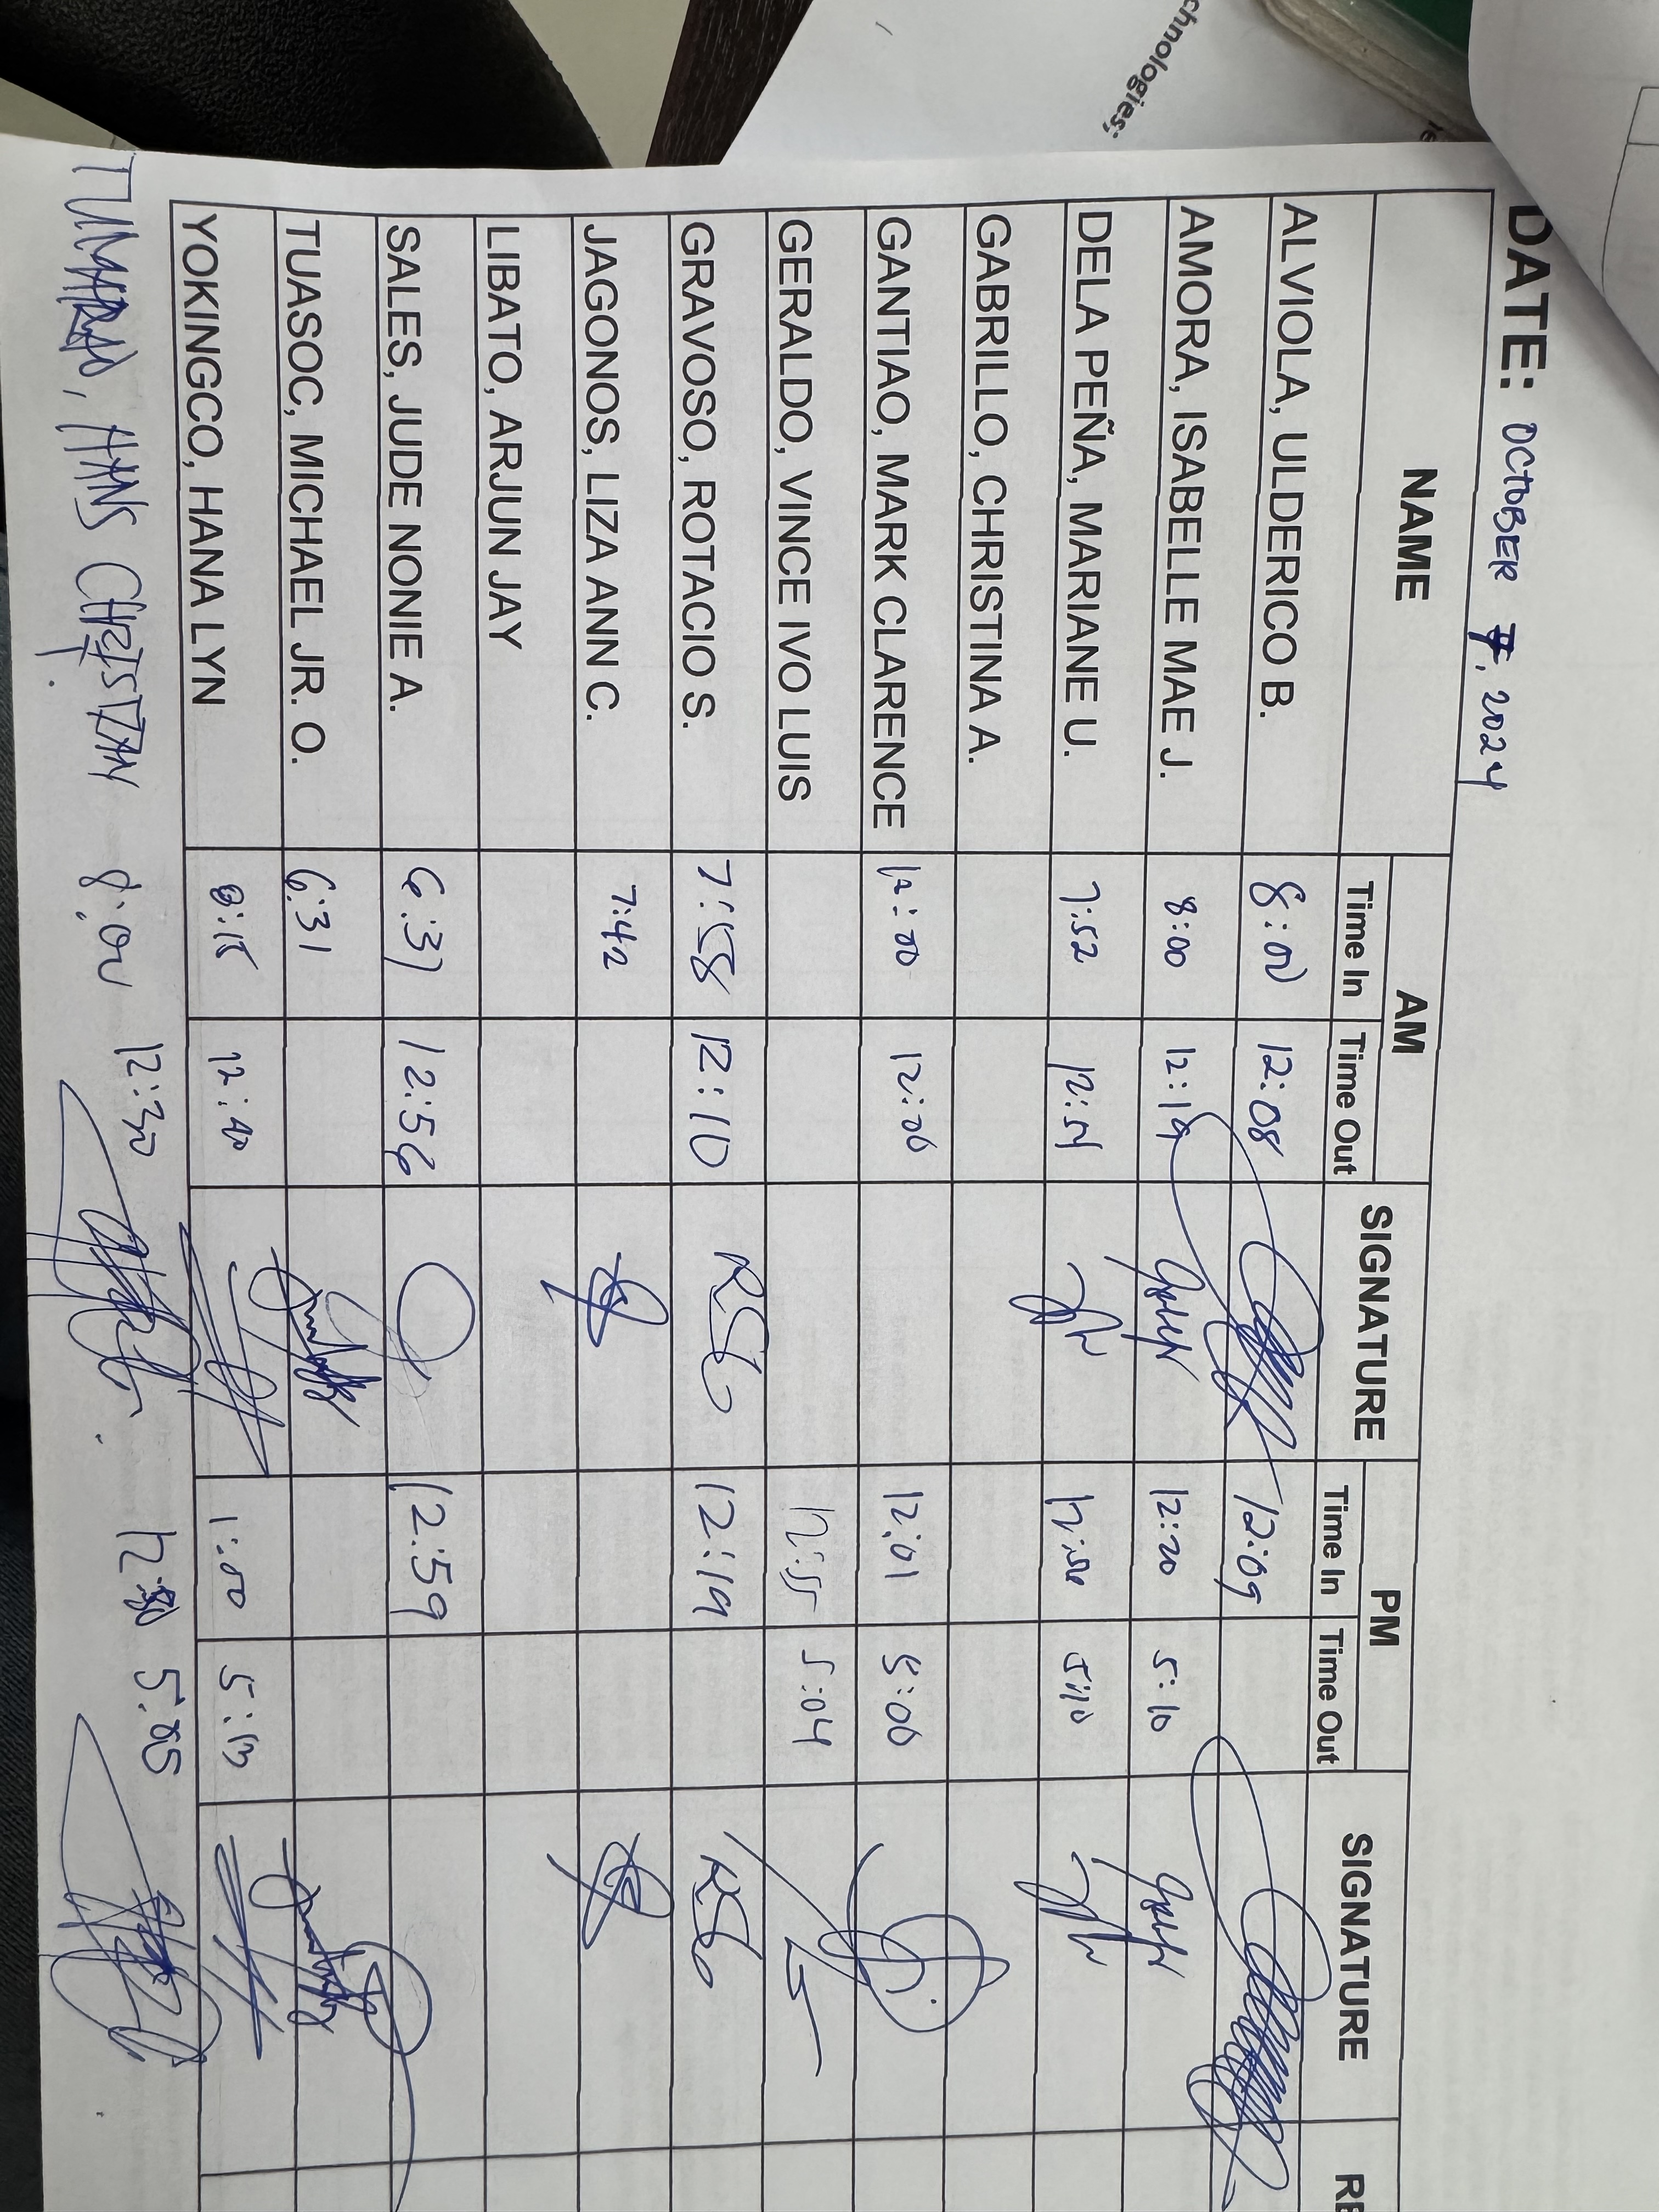 chnologies;
DATE: OCTOBER 7, 2024
NAME AM SIGNATURE PM SIGNATURE
Time In Time Out Time In Time Out
ALVIOLA, ULDERICO B. 8:00 12:08 12:09
AMORA, ISABELLE MAE J. 8:00 12:19 12:20 5:10
DELA PEÑA, MARIANE U. 7:52 5:10
GABRILLO, CHRISTINA A.
GANTIAO, MARK CLARENCE 12:01 5:00
GERALDO, VINCE IVO LUIS 12:55 5:04
GRAVOSO, ROTACIO S. 7:58 12:10 12:19
JAGONOS, LIZA ANN C. 7:42
LIBATO, ARJUN JAY
SALES, JUDE NONIE A. 6:31 12:56 12:59
TUASOC, MICHAEL JR. O. 6:31
YOKINGCO, HANA LYN 8:15 12:40 1:00 5:13
HANS CHRISTIAN 8:00 12:30 5:05